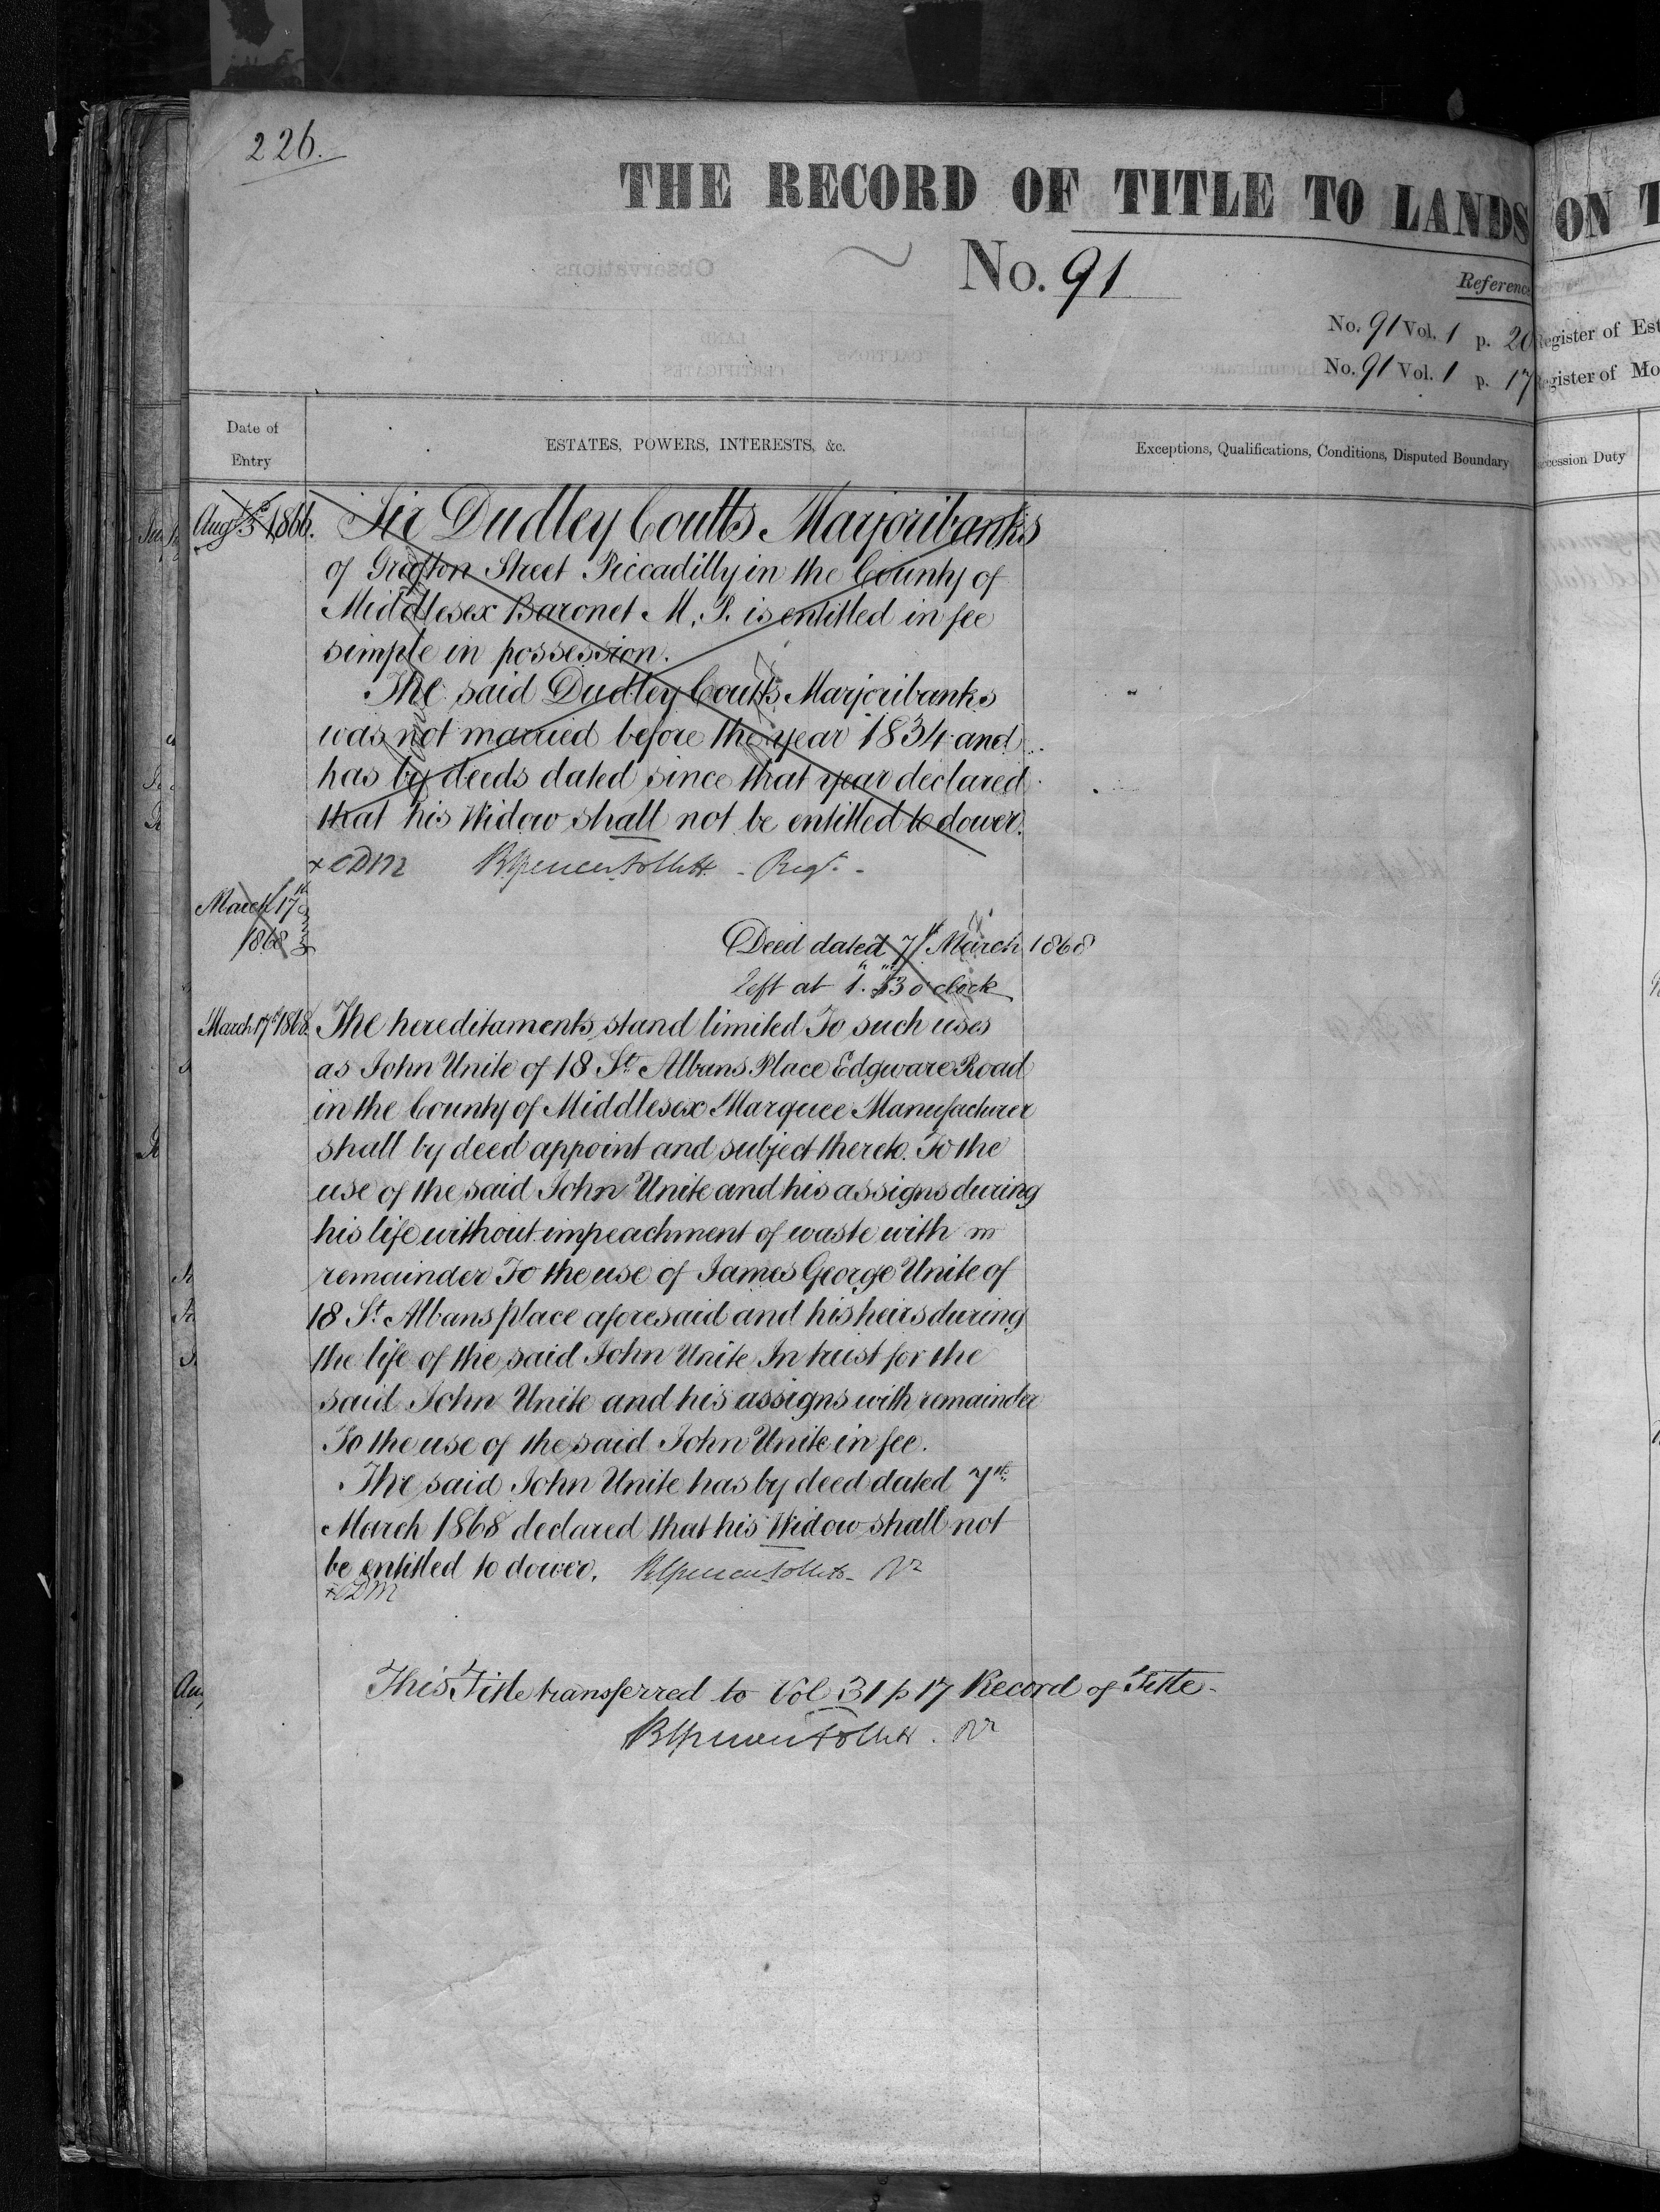 226.
THE RECORD OF TITLE TO LANDS ON T
No. 91
Reference
No. 91 Vol. 1 p. 20 Register of Est
No. 91 Vol. 1 p. 17 Register of Mo
Date of Entry
ESTATES, POWERS, INTERESTS, &c.
Exceptions, Qualifications, Conditions, Disputed Boundary
ccession Duty
Augt 3d 1866. Sir Dudley Coutts Marjoribanks
of Grafton Street Piccadilly in the County of
Middlesex Baronet M.P. is entitled in fee
simple in possession.
The said Dudley Coutts Marjoribanks
was not married before the year 1834 and
has by deeds dated since that year declared
that his Widow shall not be entitled to dower.
+ CDM Regr.
March 17th
1868
Deed dated 7th March 1868
left at o'clock
March 17th 1868. The hereditaments stand limited To such uses
as John Unite of 18 St. Albans Place Edgware Road
in the County of Middlesex Marquee Manufacturer
shall by deed appoint and subject thereto. To the
use of the said John Unite and his assigns during
his life without impeachment of waste with
remainder To the use of James George Unite of
18 St. Albans place aforesaid and his heirs during
the life of the said John Unite In trust for the
said John Unite and his assigns with remainder
To the use of the said John Unite in fee.
The said John Unite has by deed dated 7th
March 1868 declared that his Widow shall not
be entitled to dower.
+ CDM
This Title transferred to Vol 31 p 17 Record of Title.